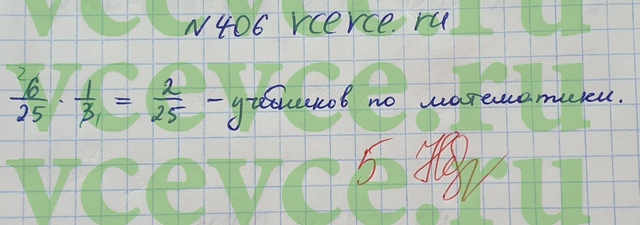 N 406 vcevce.ru
6/25 · 1/3 = 2/25 – учебников по математики.
5
vcevce.ru
vcevce.ru
vcevce.ru